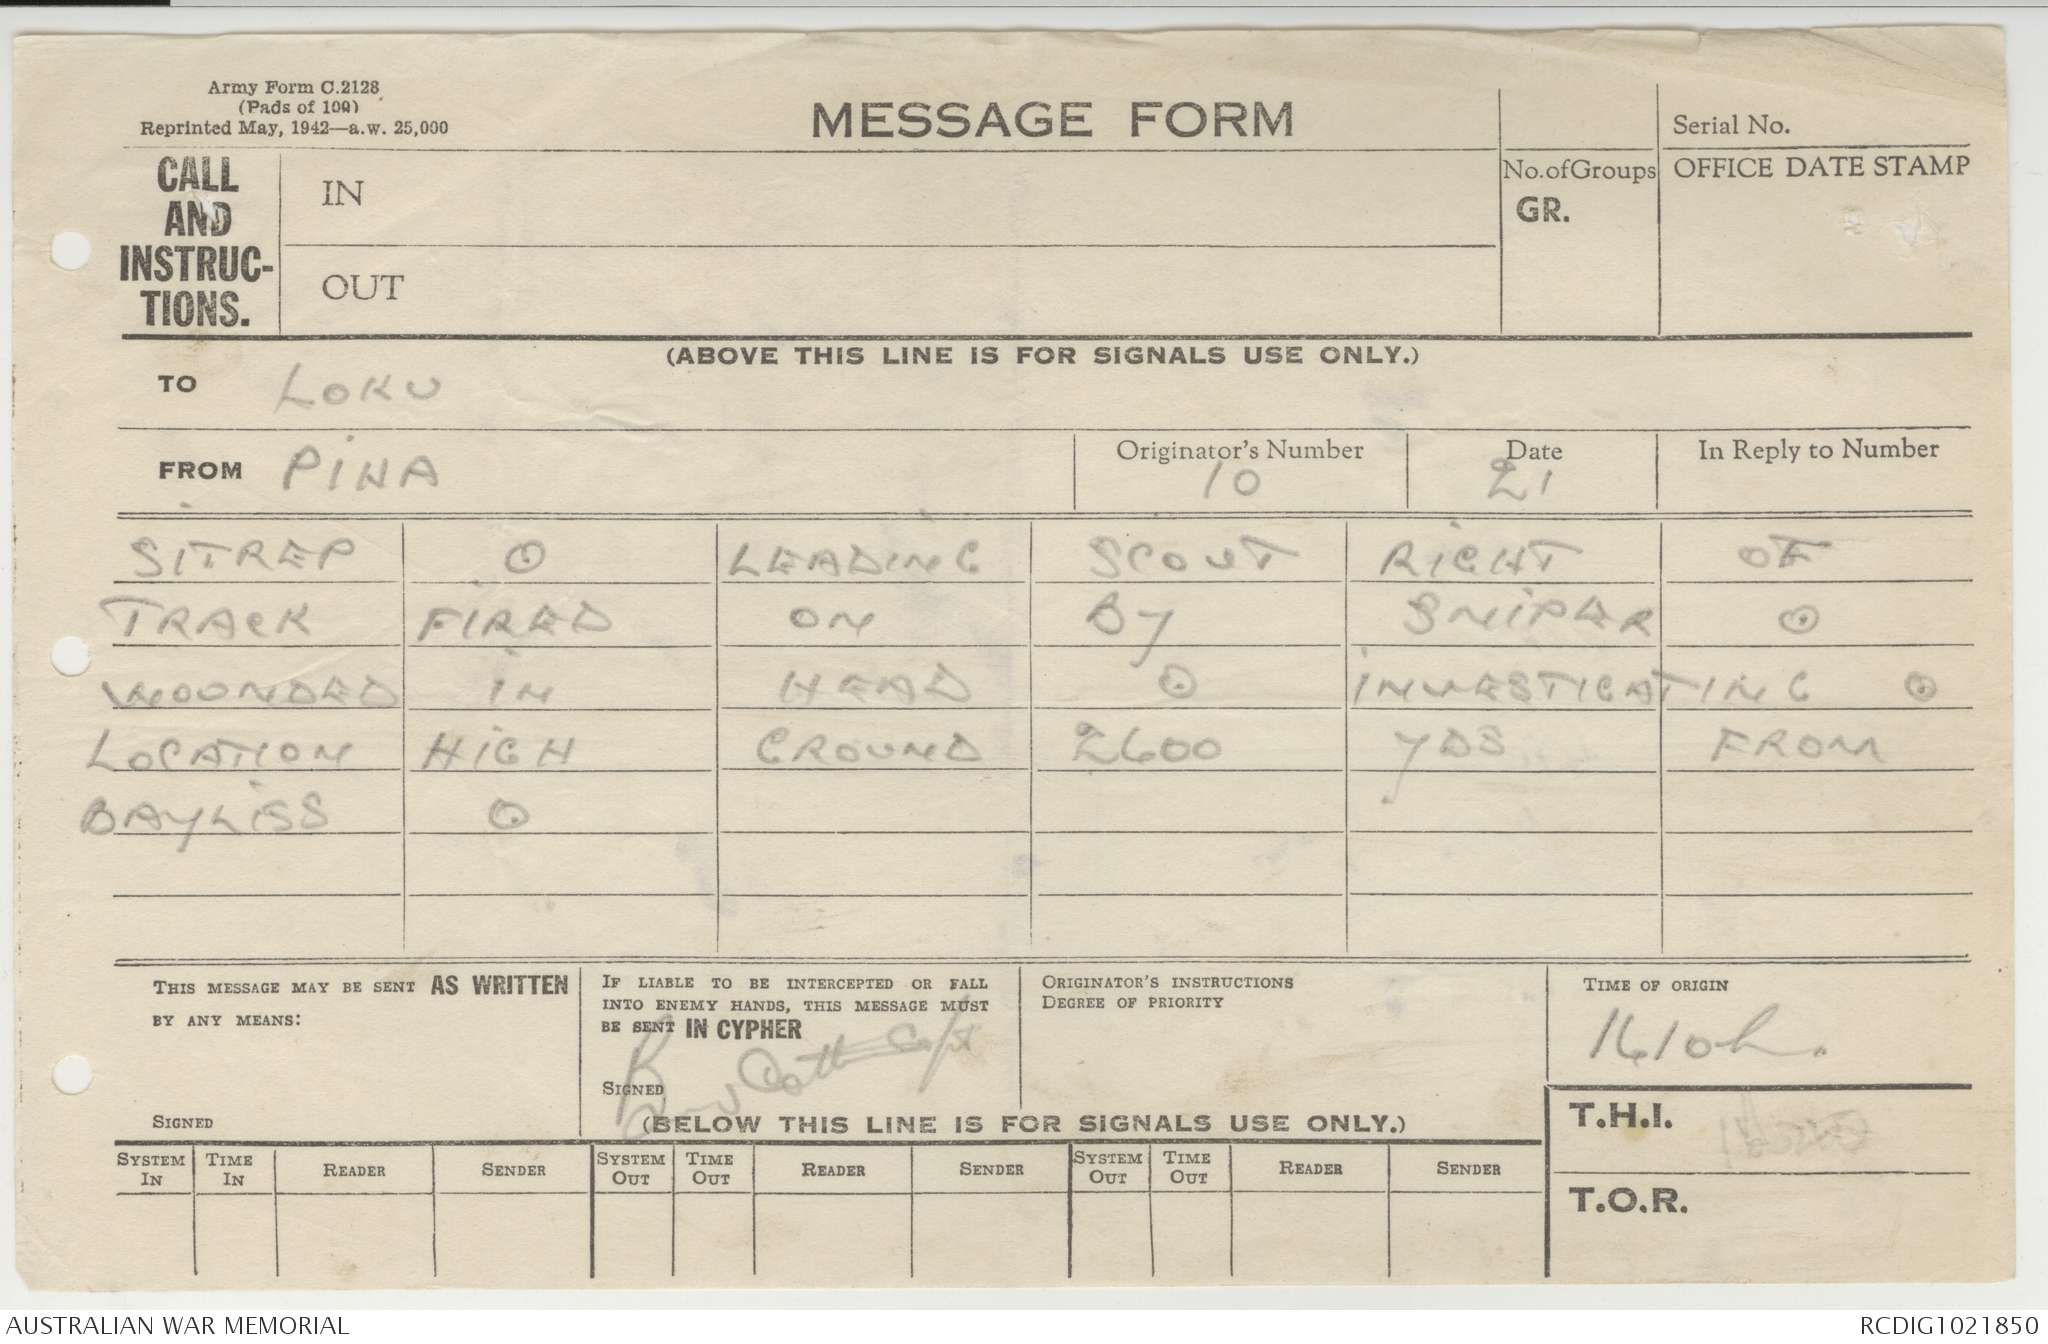 Army Form C.2128
(Pads of 100)
Reprinted May, 1942—a.w. 25,000
MESSAGE FORM
Serial No.
CALL AND INSTRUC- TIONS.
IN
OUT
No. of Groups
GR.
OFFICE DATE STAMP
(ABOVE THIS LINE IS FOR SIGNALS USE ONLY.)
TO LOKU
FROM PINA
Originator's Number 10
Date 21
In Reply to Number
SITREP ⊙ LEADING SCOUT RIGHT OF
TRACK FIRED ON BY SNIPER ⊙
WOUNDED IN HEAD ⊙ INVESTIGATING ⊙
LOCATION HIGH GROUND 2600 YDS FROM
BAYLISS ⊙
THIS MESSAGE MAY BE SENT AS WRITTEN
BY ANY MEANS:
SIGNED
IF LIABLE TO BE INTERCEPTED OR FALL
INTO ENEMY HANDS, THIS MESSAGE MUST
BE SENT IN CYPHER
SIGNED
Capt
ORIGINATOR'S INSTRUCTIONS
DEGREE OF PRIORITY
TIME OF ORIGIN
1610h.
(BELOW THIS LINE IS FOR SIGNALS USE ONLY.)
T.H.I.
T.O.R.
SYSTEM IN TIME IN READER SENDER SYSTEM OUT TIME OUT READER SENDER SYSTEM OUT TIME OUT READER SENDER
AUSTRALIAN WAR MEMORIAL
RCDIG1021850